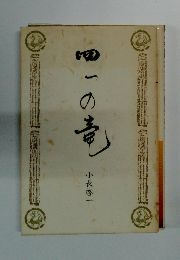 四一の竜
小長啓一